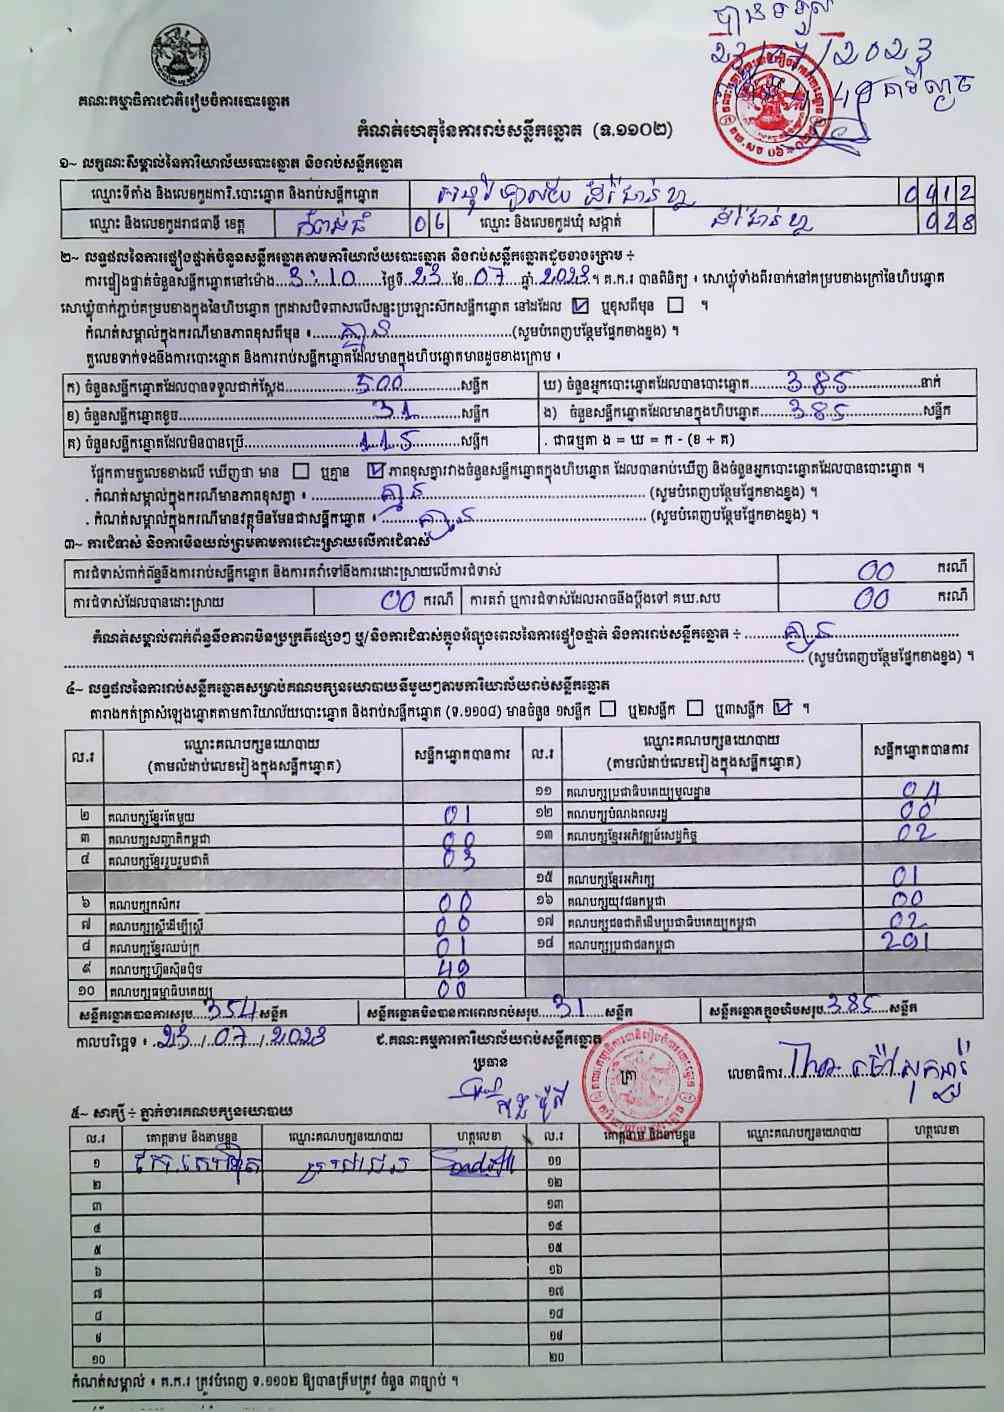 បានទទួល
23/07/2023
គណៈកម្មាធិការជាតិរៀបចំការបោះឆ្នោត
កំណត់ហេតុនៃការរាប់សន្លឹកឆ្នោត (ទ.១១០២)
១~ លក្ខណៈសម្គាល់នៃការិយាល័យបោះឆ្នោត និងរាប់សន្លឹកឆ្នោត
ឈ្មោះទីតាំង និងលេខកូដការិ.បោះឆ្នោត និងរាប់សន្លឹកឆ្នោត 0412
ឈ្មោះ និងលេខកូដរាជធានី ខេត្ត កំពង់ធំ 06 ឈ្មោះ និងលេខកូដឃុំ សង្កាត់ 028
២~ លទ្ធផលនៃការផ្ទៀងផ្ទាត់ចំនួនសន្លឹកឆ្នោតតាមការិយាល័យបោះឆ្នោត និងរាប់សន្លឹកឆ្នោតដូចខាងក្រោម ÷
ការផ្ទៀងផ្ទាត់ចំនួនសន្លឹកឆ្នោតនៅម៉ោង 3:10 ថ្ងៃទី 23 ខែ 07 ឆ្នាំ 2023 ។ គ.ក.រ បានពិនិត្យ ៖ សោឃ្លុំទាំងពីរចាក់នៅគម្របខាងក្រៅនៃហិបឆ្នោត
សោឃ្លុំចាក់ភ្ជាប់គម្របខាងក្នុងនៃហិបឆ្នោត ក្រដាសបិទពាសលើសន្ទះប្រឡោះសៀតសន្លឹកឆ្នោត នៅដដែល ☑ ឬខុសពីមុន ☐ ។
កំណត់សម្គាល់ក្នុងករណីមានភាពខុសពីមុន ៖ គ្មាន (សូមបំពេញបន្ថែមផ្នែកខាងខ្នង) ។
តួលេខទាក់ទងនឹងការបោះឆ្នោត និងការរាប់សន្លឹកឆ្នោតដែលមានក្នុងហិបឆ្នោតមានដូចខាងក្រោម ៖
ក) ចំនួនសន្លឹកឆ្នោតដែលបានទទួលជាក់ស្តែង 500 សន្លឹក ឃ) ចំនួនអ្នកបោះឆ្នោតដែលបានបោះឆ្នោត 385 នាក់
ខ) ចំនួនសន្លឹកឆ្នោតខូច 31 សន្លឹក ង) ចំនួនសន្លឹកឆ្នោតដែលមានក្នុងហិបឆ្នោត 385 សន្លឹក
គ) ចំនួនសន្លឹកឆ្នោតដែលមិនបានប្រើ 115 សន្លឹក . ជាធម្មតា ង = ឃ = ក - (ខ + គ)
ផ្អែកតាមតួលេខខាងលើ ឃើញថា មាន ☐ ឬគ្មាន ☑ ភាពខុសគ្នារវាងចំនួនសន្លឹកឆ្នោតក្នុងហិបឆ្នោត ដែលបានរាប់ឃើញ និងចំនួនអ្នកបោះឆ្នោតដែលបានបោះឆ្នោត ។
. កំណត់សម្គាល់ក្នុងករណីមានភាពខុសគ្នា ៖ គ្មាន (សូមបំពេញបន្ថែមផ្នែកខាងខ្នង) ។
. កំណត់សម្គាល់ក្នុងករណីមានវត្ថុមិនមែនជាសន្លឹកឆ្នោត ៖ គ្មាន (សូមបំពេញបន្ថែមផ្នែកខាងខ្នង) ។
៣~ ការជំទាស់ និងការមិនយល់ព្រមតាមការដោះស្រាយលើការជំទាស់
ការជំទាស់ពាក់ព័ន្ធនឹងការរាប់សន្លឹកឆ្នោត និងការតវ៉ាទៅនឹងការដោះស្រាយលើការជំទាស់ 00 ករណី
ការជំទាស់ដែលបានដោះស្រាយ 00 ករណី ការតវ៉ា ឬការជំទាស់ដែលអាចនឹងប្តឹងទៅ គឃ.សប 00 ករណី
កំណត់សម្គាល់ពាក់ព័ន្ធនឹងភាពមិនប្រក្រតីផ្សេងៗ ឬ/និងការជំទាស់ក្នុងអំឡុងពេលនៃការផ្ទៀងផ្ទាត់ និងការរាប់សន្លឹកឆ្នោត ÷ គ្មាន
(សូមបំពេញបន្ថែមផ្នែកខាងខ្នង) ។
៤~ លទ្ធផលនៃការរាប់សន្លឹកឆ្នោតសម្រាប់គណបក្សនយោបាយនីមួយៗតាមការិយាល័យរាប់សន្លឹកឆ្នោត
តារាងកត់ត្រាសំឡេងឆ្នោតតាមការិយាល័យបោះឆ្នោត និងរាប់សន្លឹកឆ្នោត (ទ.១១០៨) មានចំនួន ១សន្លឹក ☐ ឬ២សន្លឹក ☐ ឬ៣សន្លឹក ☑ ។
ល.រ ឈ្មោះគណបក្សនយោបាយ (តាមលំដាប់លេខរៀងក្នុងសន្លឹកឆ្នោត) សន្លឹកឆ្នោតបានការ ល.រ ឈ្មោះគណបក្សនយោបាយ (តាមលំដាប់លេខរៀងក្នុងសន្លឹកឆ្នោត) សន្លឹកឆ្នោតបានការ
១១ គណបក្សប្រជាធិបតេយ្យមូលដ្ឋាន 04
២ គណបក្សខ្មែរតែមួយ 01 ១២ គណបក្សបំណងពលរដ្ឋ 00
៣ គណបក្សសញ្ជាតិកម្ពុជា 00 ១៣ គណបក្សខ្មែរអភិវឌ្ឍន៍សេដ្ឋកិច្ច 02
៤ គណបក្សខ្មែររួបរួមជាតិ 03
១៥ គណបក្សខ្មែរអភិរក្ស 01
៦ គណបក្សកសិករ 00 ១៦ គណបក្សយុវជនកម្ពុជា 00
៧ គណបក្សស្ត្រីដើម្បីស្ត្រី 00 ១៧ គណបក្សជនជាតិដើមប្រជាធិបតេយ្យកម្ពុជា 02
៨ គណបក្សខ្មែរឈប់ក្រ 01 ១៨ គណបក្សប្រជាជនកម្ពុជា 291
៩ គណបក្សហ៊្វុនស៊ិនប៉ិច 49
១០ គណបក្សធម្មាធិបតេយ្យ 00
សន្លឹកឆ្នោតបានការសរុប 354 សន្លឹក សន្លឹកឆ្នោតមិនបានការពេលរាប់សរុប 31 សន្លឹក សន្លឹកឆ្នោតក្នុងហិបសរុប 385 សន្លឹក
កាលបរិច្ឆេទ ៖ 23/07/2023 ជ.គណៈកម្មការការិយាល័យរាប់សន្លឹកឆ្នោត
ប្រធាន
ត្រា
លេខាធិការ
៥~ សាក្សី ÷ ភ្នាក់ងារគណបក្សនយោបាយ
ល.រ គោត្តនាម និងនាមខ្លួន ឈ្មោះគណបក្សនយោបាយ ហត្ថលេខា ល.រ គោត្តនាម និងនាមខ្លួន ឈ្មោះគណបក្សនយោបាយ ហត្ថលេខា
១ ប្រជាជន ១១
២ ១២
៣ ១៣
៤ ១៤
៥ ១៥
៦ ១៦
៧ ១៧
៨ ១៨
៩ ១៩
១០ ២០
កំណត់សម្គាល់ ៖ គ.ក.រ ត្រូវបំពេញ ទ.១១០២ ឱ្យបានត្រឹមត្រូវ ចំនួន ៣ច្បាប់ ។